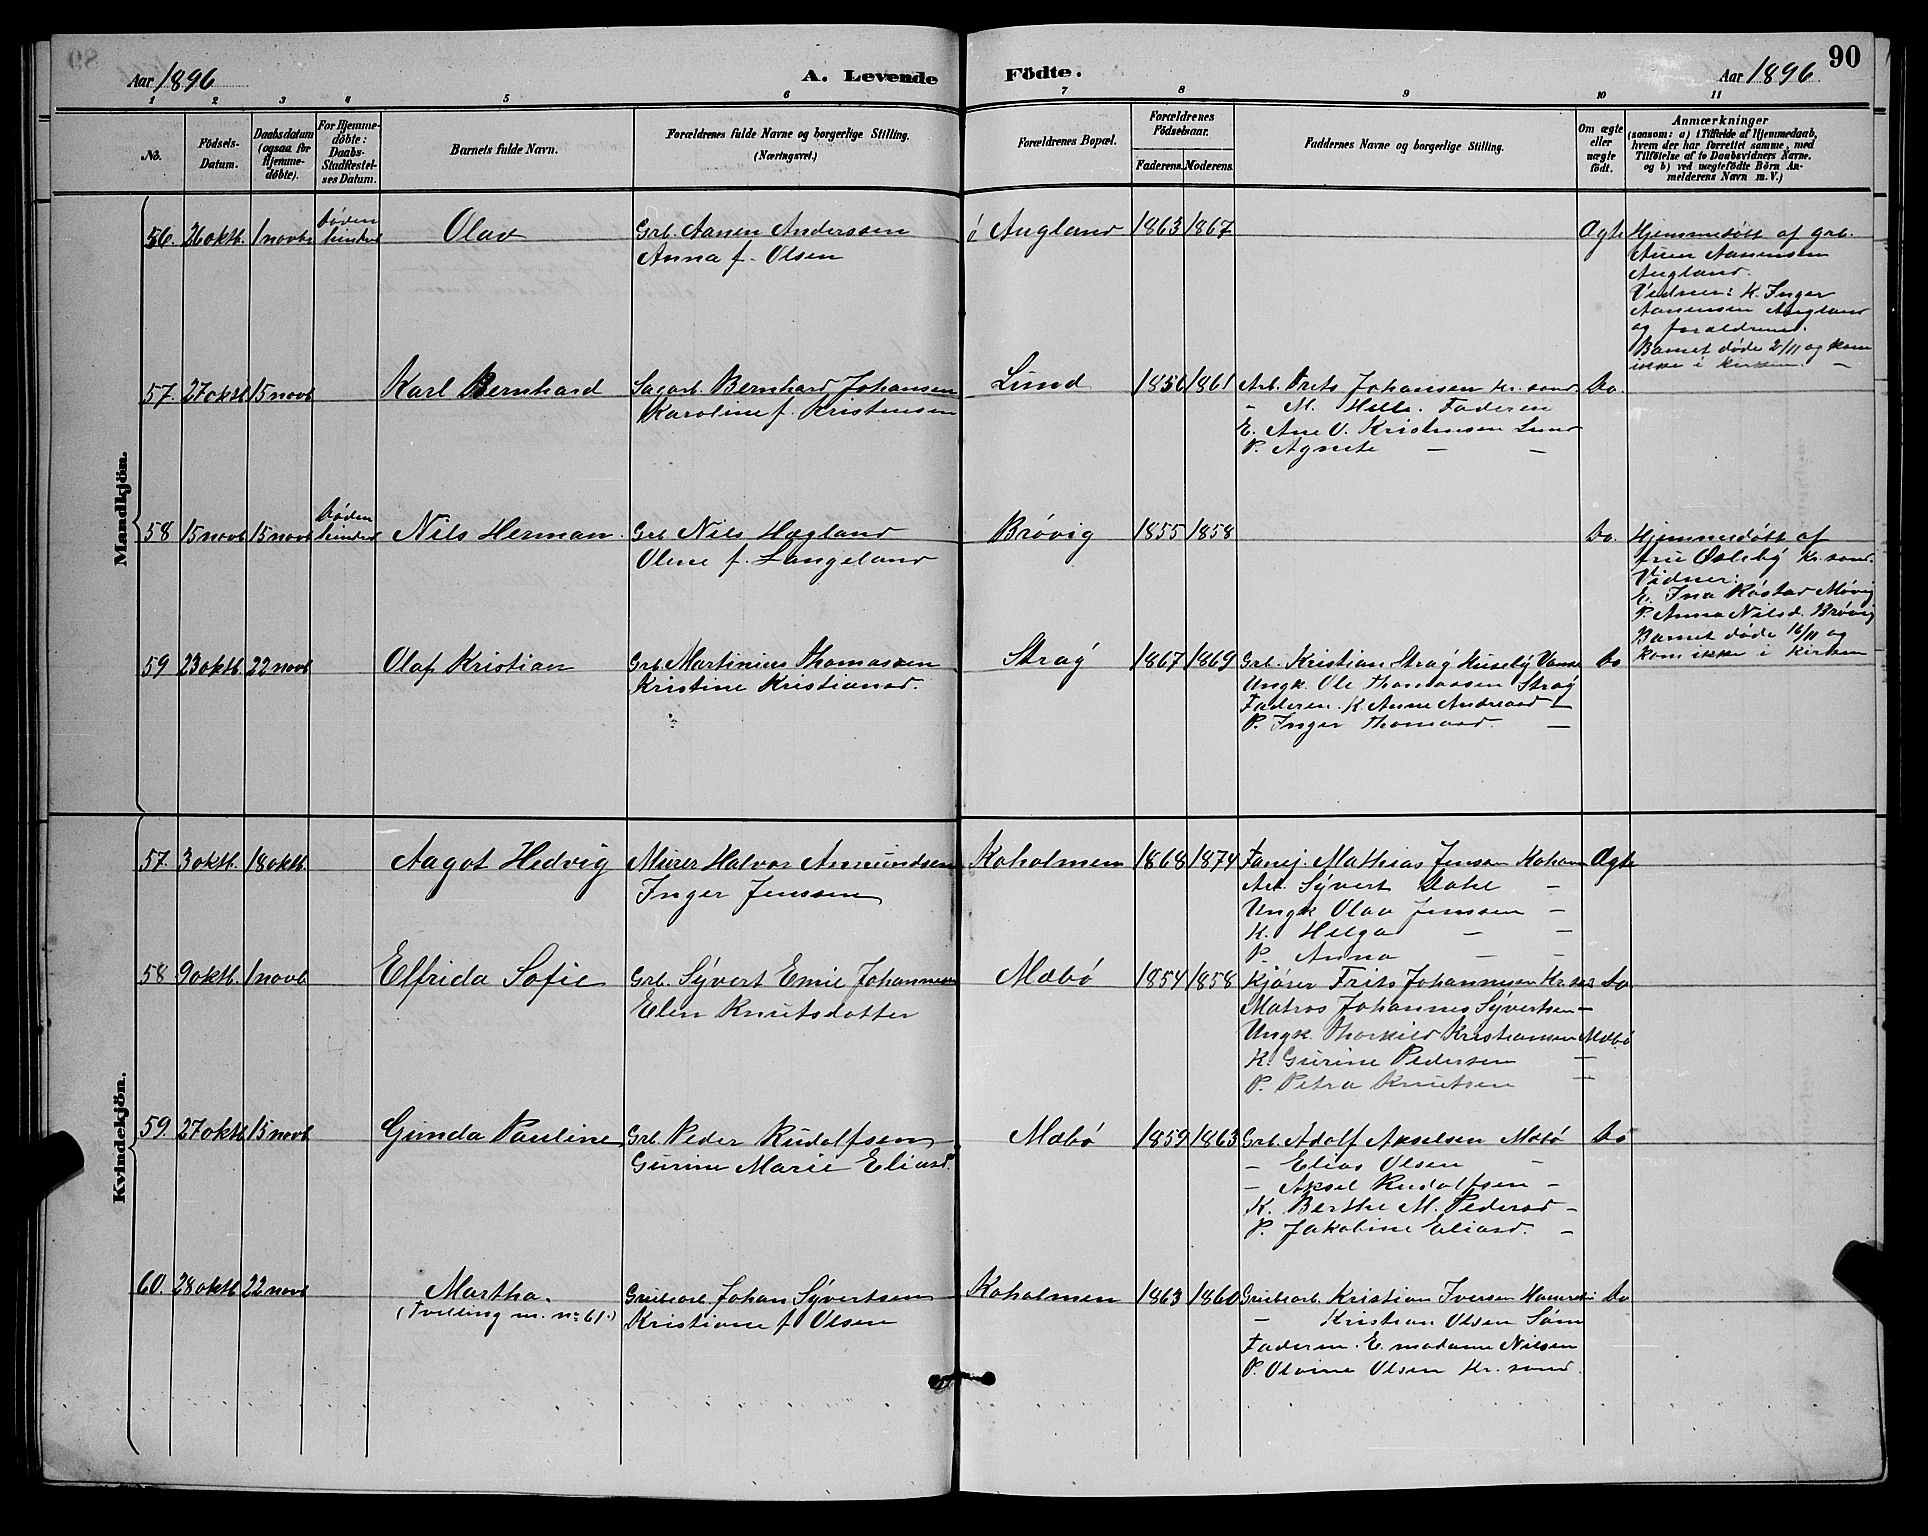 90
Aar 1896
A. Levende Födte.
Aar 1896
1 2 3 4 5 6 7 8 9 10 11
No.
Födsels-Datum.
Daabsdatum (ogsaa for Hjemme-döbte).
For Hjemme-döbte: Daabs-Stadfæstel-ses Datum.
Barnets fulde Navn.
Forældrenes fulde Navne og borgerlige Stilling.
(Næringsvei.)
Forældrenes Bopæl.
Forældrenes Födselsaar.
Faderens. Moderens.
Faddernes Navne og borgerlige Stilling.
Om ægte eller uægte født.
Anmærkninger
(saasom: a) i Tilfælde af Hjemmedaab,
hvem der har forrettet samme, med
Tilföielse af to Daabsvidners Navne.
og b) ved uægtefödte Börn An-
melderens Navn m. V.)
Mandkjön.
56. 26 oktb. 1 novb. Døden hindred Olav Grb. Aanen Anderssen Augland 1863 1867 Ægte Hjemmedøbt af grb.
Anna f. Olsen
Aanensen
Augland.
Vidner: K. Inger
Aanensen Augland
og forældrene.
Barnet døde 2/11 og kom
ikke i kirken. —
57. 27 oktb 15 novb Karl Bernhard Sagarb. Bernhard Johansen Lund 1856 1861 Arb. Frits Johansen Kr. sand. Do.
Karoline f. Kristensen
— M. Hille. Faderen
E. Ane V. Kristensen Lund
P. Agnete — —
58 15 novb 15 novb Døden hindred Nils Herman. Grb Nils Hægland Brøvig 1855 1858 Do. Hjemmedøbt af
Olene f. Langeland
fru Kr. sand.
Vidner:
E. Ina Møvig
P. Anna Nilsd. Brøvig
Barnet døde 16/11 og
kom ikke i Kirken
59 23 oktb. 22 novb Olaf Kristian Grb. Martinius Thomassen Straÿ 1867 1869 Grb. Kristian Straÿ Husebÿ Vanse Do
Kristine Kristiansd.
Ungk. Ole Thomassen Straÿ
Faderen. K. Anne Andreasd —
P. Inger Thomasd. —
Kvindekjön.
57. 3 oktb. 18 oktb. Aagot Hedvig Murer Halvor Amundsen Koholmen 1868 1874 Mathias Jensen Kohom Ægte
Inger Jenssen
Arb. Sÿvert Dahl —
Ungk Olav Jenssen —
K. Helga — —
P. Anna — —
58 9 oktb. 1 novb Elfrida Sofie Grb. Sÿvert Emil Johannesen Mæbø 1854 1858 Kjører Frits Johannesen Kr. sa Do
Elen Knutsdotter
Matros Johannes Sÿvertsen —
Ungk. Thorkild Kristiansen Mæbø
K. Gurine Pedersen —
P. Petra Knutsen —
59. 27 oktb 15 novb Gunda Pauline Grb. Peder Rudolfsen Mæbø 1859 1863 Grb. Adolf Akselsen Mæbø Do
Gurine Marie Eliasd.
— Elias Olsen —
— Aksel Rudolfsen —
K. Berthe M. Pedersd —
P. Jakobine Eliasd. —
60. 28 oktb 22 novb Martha. Grubearb. Johan Sÿvertsen Koholmen 1863 1860 Grubearb. Kristian Iversen Do
(Tvilling m. no 61.) Kristiane f Olsen
— Kristian Olsen Søm
Faderen. E. madame Nilsen
P. Olvine Olsen Kr. sand.